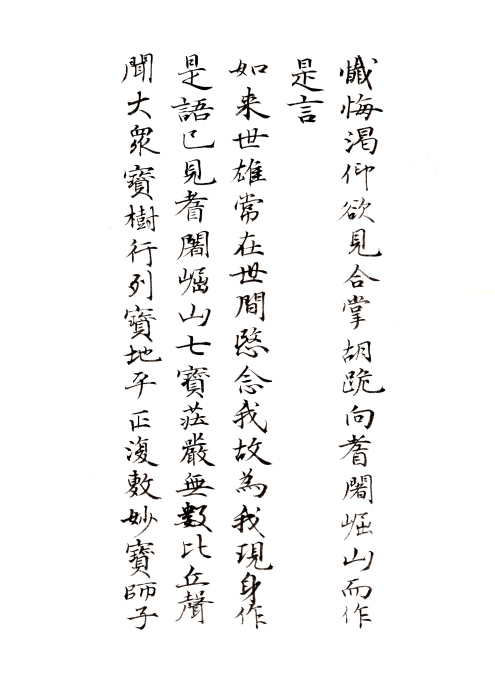 懺悔渴仰欲見合掌胡跪向耆闍崛山而作
是言
如来世雄常在世間愍念我故為我現身作
是語已見耆闍崛山七寶莊嚴無數比丘聲
聞大眾寶樹行列寶地平正復敷妙寶師子